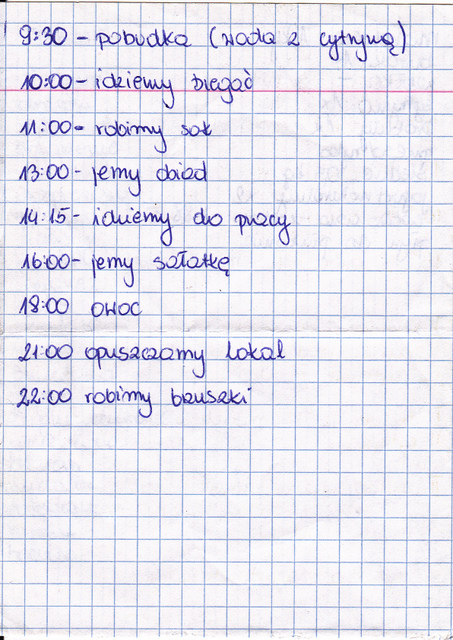 9:30 - pobudka (woda z cytryną)
10:00 - idziemy biegać
11:00 - robimy sok
13:00 - jemy obiad
14:15 - idziemy do pracy
16:00 - jemy sałatkę
18:00 owoc
21:00 opuszczamy lokal
22:00 robimy brzuszki